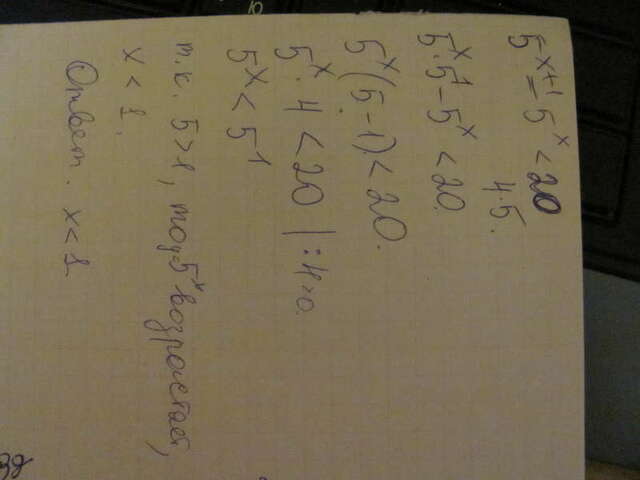 5^{x+1} - 5^x < 20
4·5.
5^x·5^1 - 5^x < 20.
5^x(5-1) < 20.
5^x · 4 < 20 | :4>0.
5^x < 5^1
т.к. 5>1, то y=5^x возрастает,
x < 1.
Ответ. x < 1